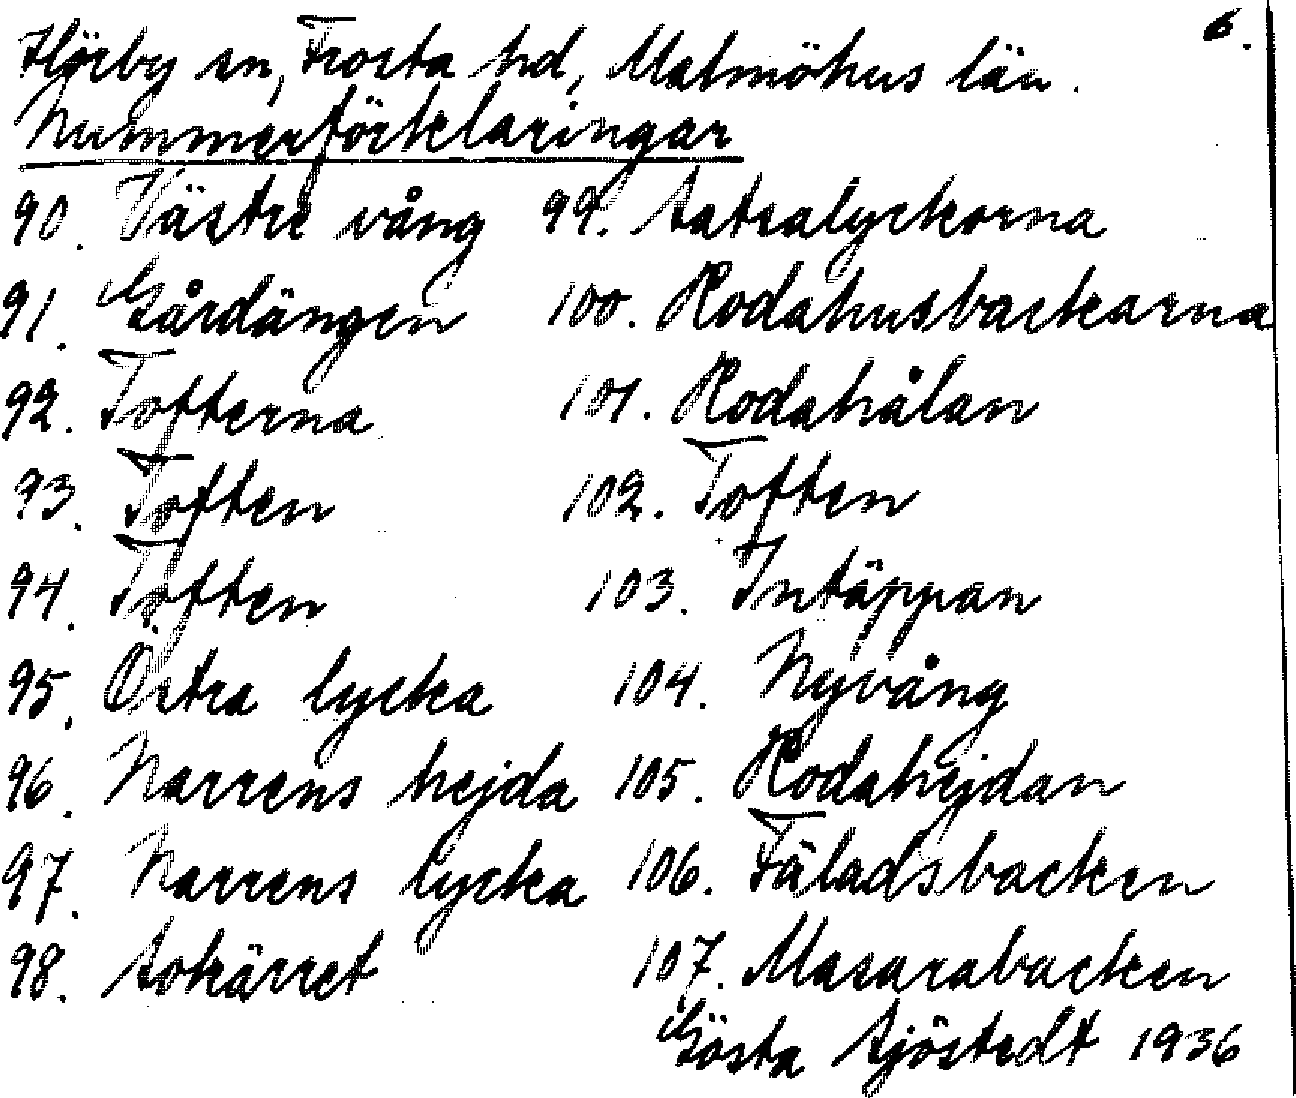 6.
Hörby sn, Frosta hd, Malmöhus län.
Nummerförklaringar
90. Västre vång
91. Gårdängen
92. Tofterna
93. Toften
94. Toften
95. Östra lycka
96. Narrens hejda
97. Narrens lycka
98. Sokärret
99. Satsalyckorna
100. Rodahusbackarna
101. Rodahålan
102. Toften
103. Intäppan
104. Nyvång
105. Rodahejdan
106. Fäladsbacken
107. Masarabacken
Gösta Sjöstedt 1936